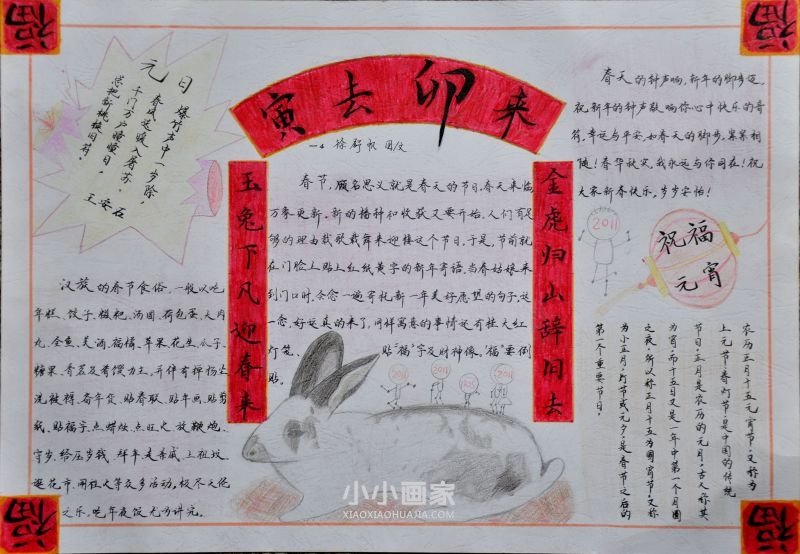 福
福
寅去卯来
元日 爆竹声中一岁除，
春风送暖入屠苏。
千门万户曈曈日，
总把新桃换旧符。
王安石
玉兔下凡迎春来
金虎归山辞旧去
春节，顾名思义就是春天的节日。春天来临
万象更新，新的播种和收获又要开始。人们有足
够的理由载歌载舞来迎接这个节日。于是，节前就
在门脸上贴上红纸黄字的新年寄语。当春姑娘来
到门口时，会念一遍寄托新一年美好愿望的句子，这
一念，好运真的来了。同样寓意的事情还有挂大红
灯笼、贴“福”字及财神像。“福”要倒
贴。
春天的钟声响，新年的脚步近，
祝新年的钟声敲响你心中快乐的音
符，幸运与平安，如春天的脚步，紧紧相
随！春华秋实，我永远与你同在！祝
大家新春快乐，岁岁安怡！
2011
祝福
元宵
汉族的春节食俗，一般以吃
年糕、饺子、糍粑、汤圆、荷包蛋、大肉
丸、全鱼、美酒、福橘、苹果、花生、瓜子、
糖果、香茗及肴馔为主。并伴有掸扬尘、
洗被褥、备年货、贴春联、贴年画、贴剪
纸、贴福字、点蜡烛、点旺火、放鞭炮、
守岁、给压岁钱、拜年、走亲戚、上祖坟、
逛花市、闹社火等众多活动，极尽天伦
之乐。吃年夜饭尤为讲究。
农历正月十五元宵节，又称为
上元节、春灯节，是中国的传统
节日。正月是农历的元月，古人称其
为宵，而十五日又是一年中第一个月圆
之夜，所以称正月十五为元宵节。又称
为小正月、灯节或元夕，是春节之后的
第一个重要节日。
2011
2011
2011
小小画家
XIAOXIAOHUAJIA.COM
福
福